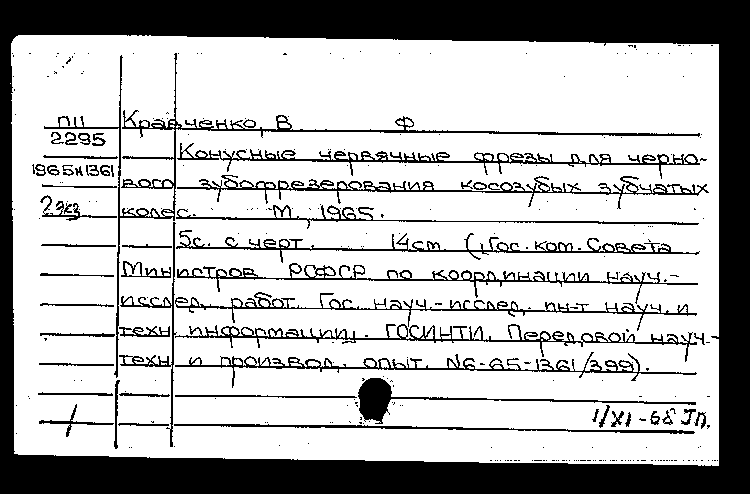 П11 Кравченко, В. Ф
2295
Конусные червячные фрезы для черно-
1965н1361 вого зубофрезерования косозубых зубчатых
2 экз колес. М., 1965.
5с. с черт. 14см (Гос. ком. Совета
Министров РСФСР по координации науч.-
исслед. работ. Гос. науч.-исслед. ин-т науч. и
техн. информации. ГОСИНТИ. Передовой науч.-
техн. и производ. опыт. N6-65-1361/399).
1/XI-68